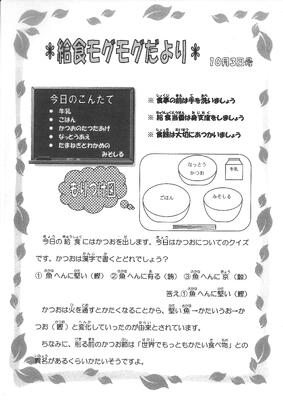 ＊給食モグモグだより＊
10月3日号
今日のこんだて
・牛乳
・ごはん
・かつおのたつたあげ
・なっとうあえ
・たまねぎとわかめの
みそしる
※ 食事の前は手を洗いましょう
※ 給食当番は身支度をしましょう
※ 食器は大切にあつかいましょう
もりつけ図
なっとう
かつお
牛乳
ごはん
みそしる
今日の給食にはかつおを出します。今日はかつおについてのクイズ
です。かつおは漢字で書くとどれでしょう？
①魚へんに堅い（鰹） ②魚へんに有る（鮪） ③魚へんに京（鯨）
答え①魚へんに堅い（鰹）
かつおは火を通すとかたくなることから、堅い魚→かたいうお→か
つお（鰹）と変化していったのが由来とされています。
ちなみに、削る前のかつお節は「世界でもっともかたい食べ物」との
異名があるくらいかたいそうですよ。